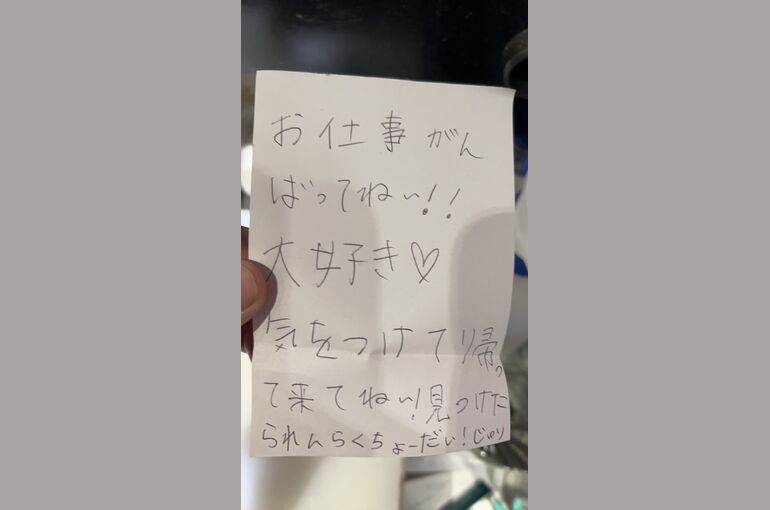 お仕事がん
ばってねぃ!!
大好き♡
気をつけて帰っ
て来てねぃ!見つけた
られんらくちょーだい!じゅり